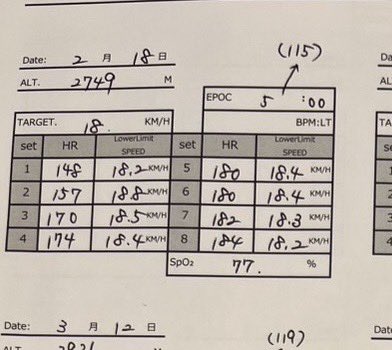 (115)
Date: 2 月 18 日
ALT. 2749 M
EPOC 5 :00
BPM:LT
TARGET. 18. KM/H
set HR LowerLimit SPEED set HR LowerLimit SPEED
1 148 18.2 KM/H 5 180 18.4 KM/H
2 157 18.8 KM/H 6 180 18.4 KM/H
3 170 18.5 KM/H 7 182 18.3 KM/H
4 174 18.4 KM/H 8 184 18.2 KM/H
SpO₂ 77. %
Date: 3 月 12 日
(119)
ALT.
Date:
ALT.
TA
set
1
2
3
4
Dat